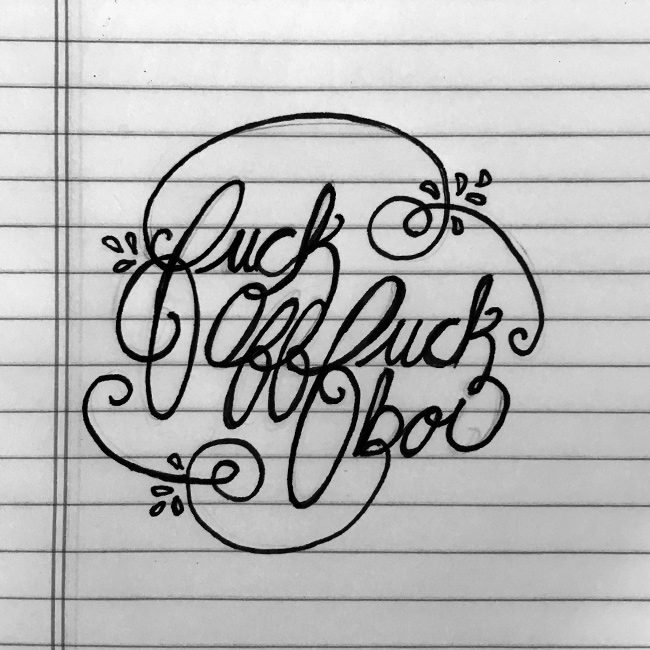 fuck
off fuck
boi